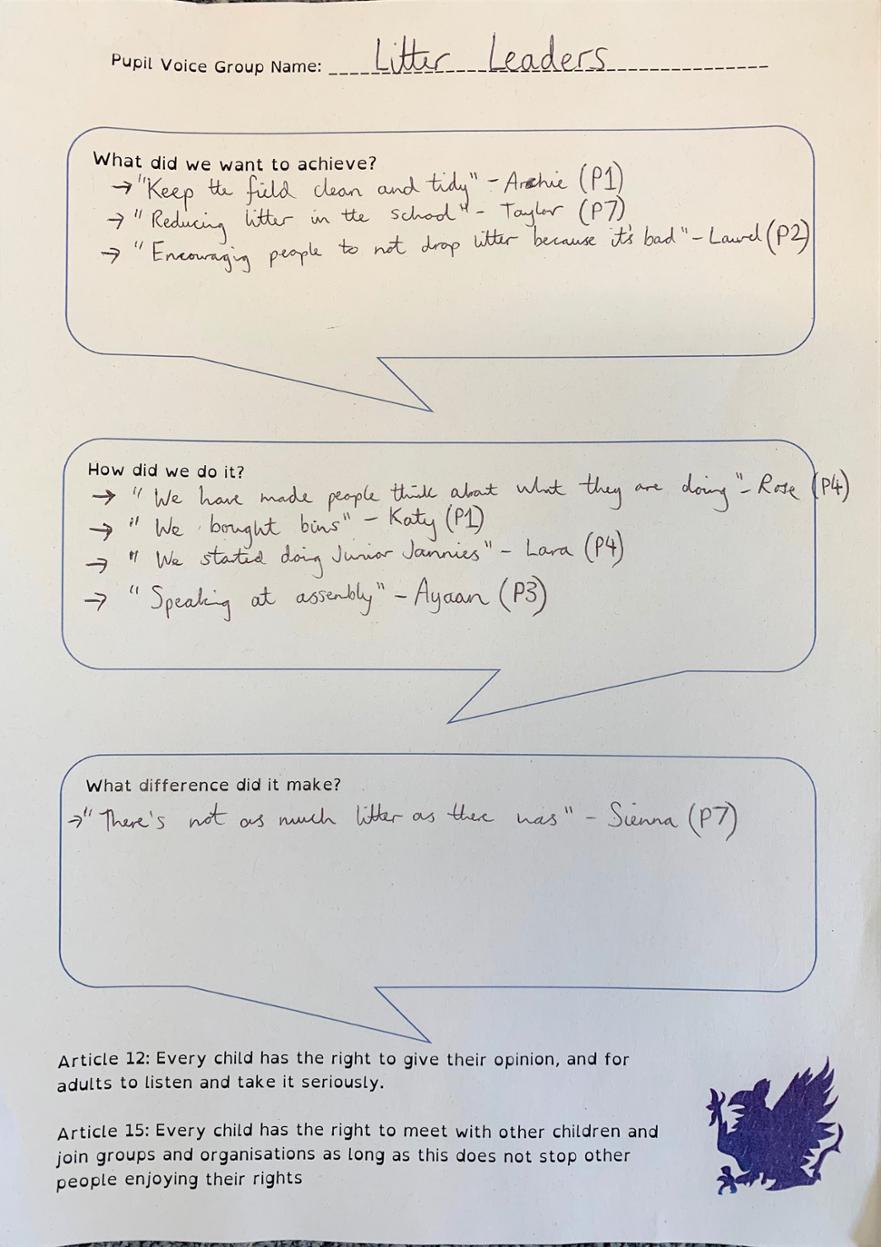 Pupil Voice Group Name: Litter Leaders
What did we want to achieve?
→ "Keep the field clean and tidy" - Archie (P1)
→ "Reducing litter in the school" - Taylor (P7)
→ "Encouraging people to not drop litter because it's bad" - Laurel (P2)
How did we do it?
→ "We have made people think about what they are doing" - Rose (P4)
→ "We bought bins" - Katy (P1)
→ "We started doing Junior Jannies" - Lara (P4)
→ "Speaking at assembly" - Ayaan (P3)
What difference did it make?
→ "There's not as much litter as there was" - Sienna (P7)
Article 12: Every child has the right to give their opinion, and for
adults to listen and take it seriously.
Article 15: Every child has the right to meet with other children and
join groups and organisations as long as this does not stop other
people enjoying their rights